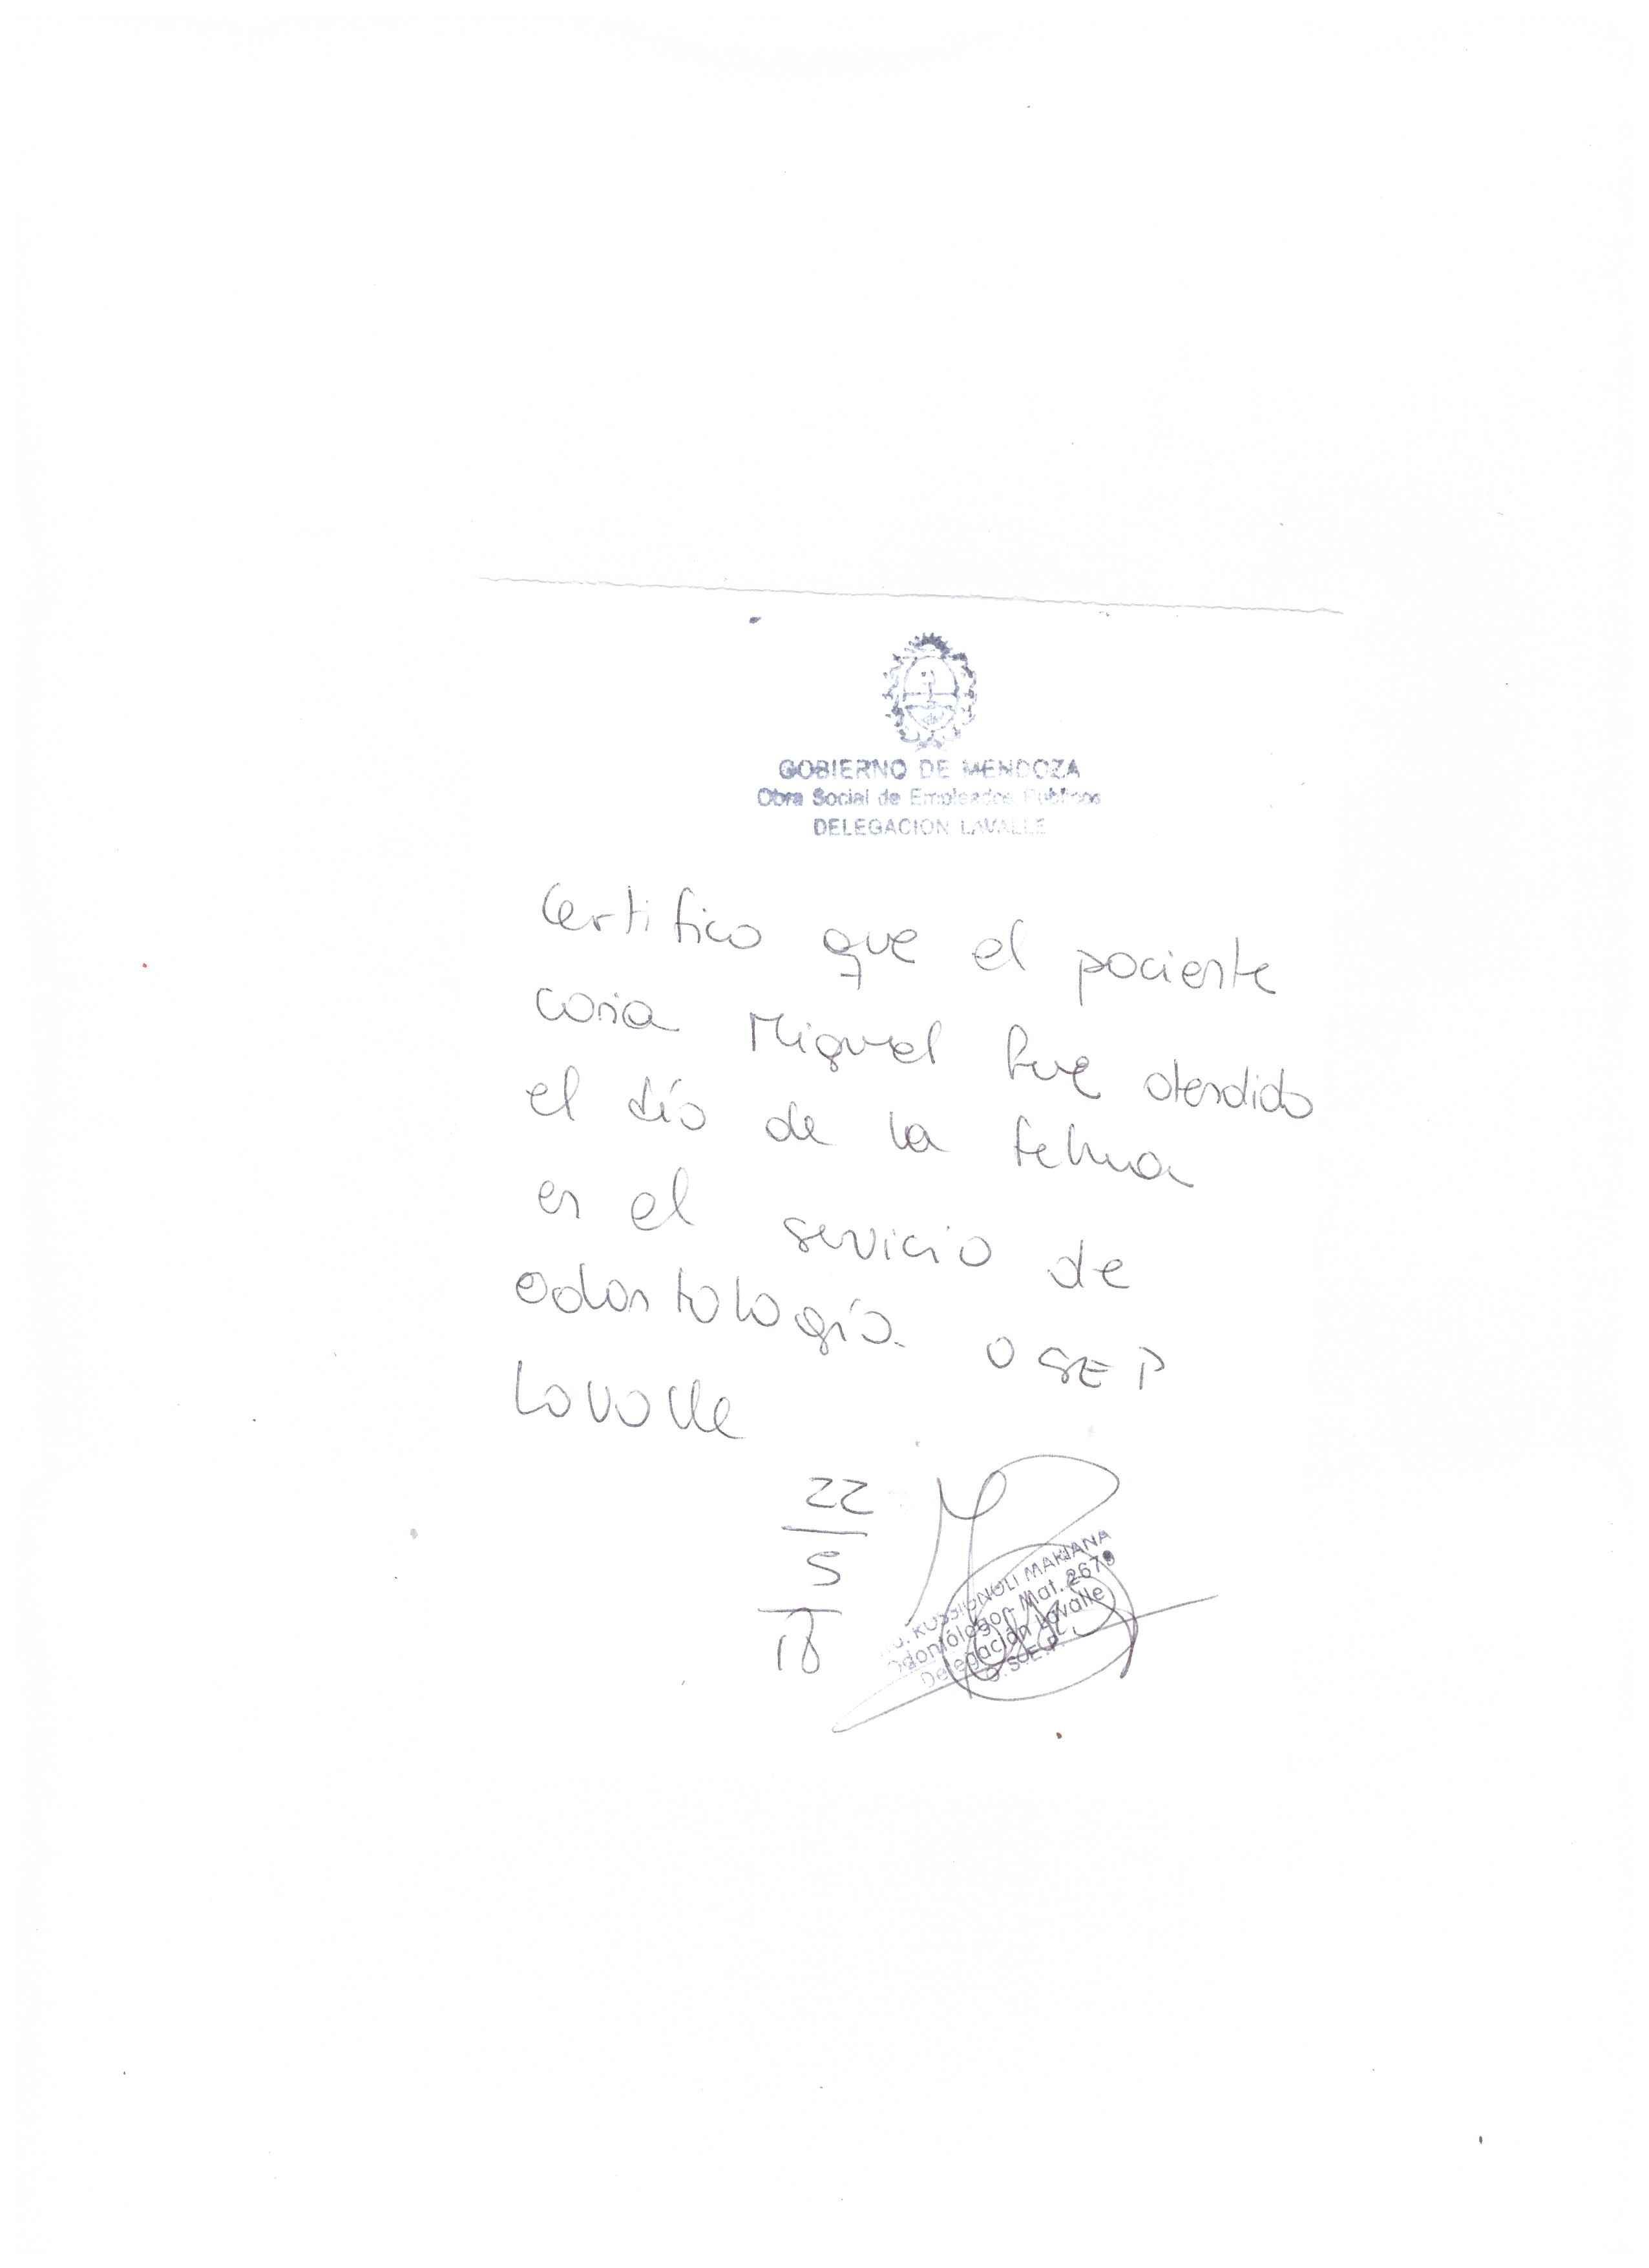 GOBIERNO DE MENDOZA
Obra Social de Empleados Publicos
DELEGACION LAVALLE
Certifico que el paciente
coria Miguel fue atendido
el día de la fecha
en el servicio de
odontología. OSEP
Lavalle
22
5
18
MARIANA
Odontólogo - Mat. 2678
Delegación Lavalle
O.S.E.P.